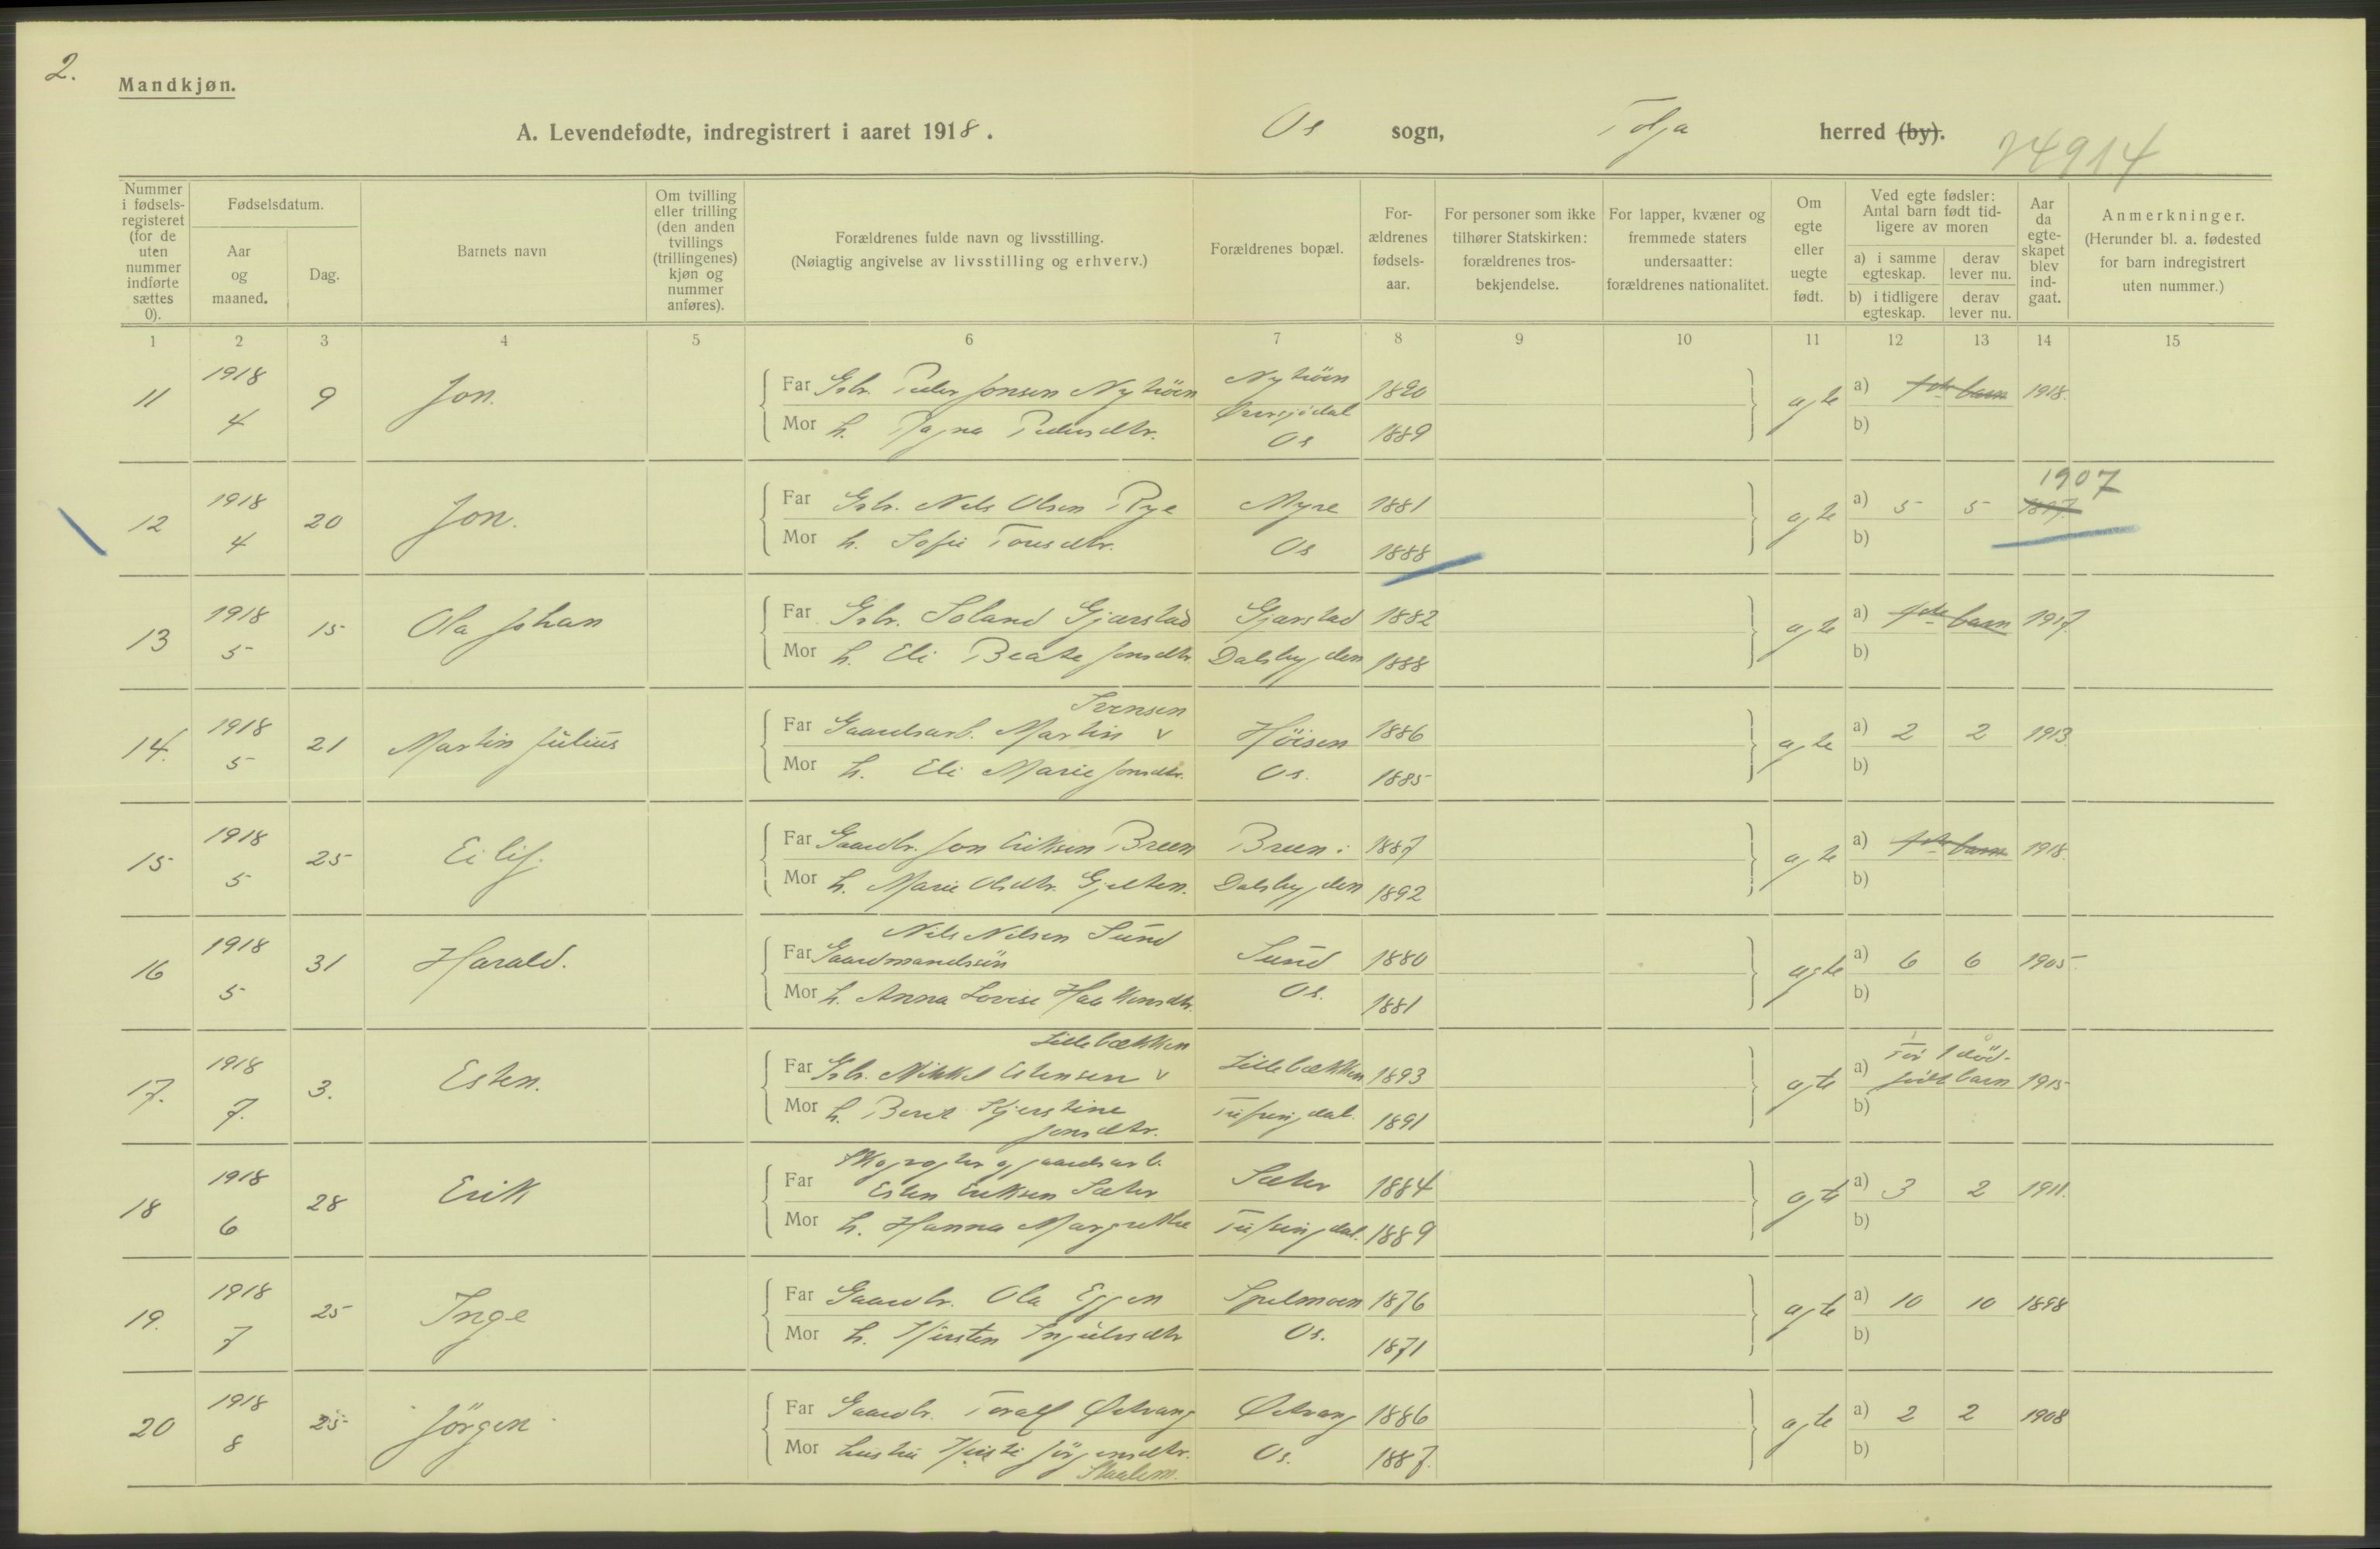 2.
Mandkjøn.
A. Levendefødte, indregistrert i aaret 1918. Os sogn, Tolga herred (by).
24914
Nummer i fødselsregisteret (for de uten nummer indførte sættes 0).
Fødselsdatum.
Aar og maaned.
Dag.
Barnets navn
Om tvilling eller trilling (den anden tvillings (trillingenes) kjøn og nummer anføres).
Forældrenes fulde navn og livsstilling.
(Nøiagtig angivelse av livsstilling og erhverv.)
Forældrenes bopæl.
For-ældrenes fødsels-aar.
For personer som ikke tilhører Statskirken: forældrenes tros-bekjendelse.
For lapper, kvæner og fremmede staters undersaatter: forældrenes nationalitet.
Om egte eller uegte født.
Ved egte fødsler: Antal barn født tid-ligere av moren
a) i samme egteskap.
derav lever nu.
b) i tidligere egteskap.
derav lever nu.
Aar da egte-skapet blev ind-gaat.
Anmerkninger.
(Herunder bl. a. fødested for barn indregistrert uten nummer.)
1 2 3 4 5 6 7 8 9 10 11 12 13 14 15
11 1918 4 9 Jon.
Far Gbr. Peder Jonsen Nytröen Nytröen 1890
Mor h. Ragna Pedersdtr. Øversjødal Os 1889
egte a) 1ste barn 1918.
b)
12 1918 4 20 Jon.
Far Gbr. Nils Olsen Rye Myre 1881
Mor h. Sofie Toresdtr. Os 1888
egte a) 5 5 1907
b)
13 1918 5 15 Ola Johan
Far Gbr. Soland Gjærstad Gjærstad 1882
Mor h. Eli Beate Jonsdtr Dalsbygden 1888
egte a) 1ste barn 1917
b)
14. 1918 5 21 Martin Julius
Svensen
Far Gaardsarb. Martin v Höisen 1886
Mor h. Eli Marie Jonsdtr. Os. 1885
egte a) 2 2 1913
b)
15 1918 5 25 Eilif.
Far Gaardbr. Jon Eriksen Breen Breen: 1887
Mor h. Marie Olsdtr. Gjelten. Dalsbygden 1892
egte a) 1ste barn 1918.
b)
16 1918 5 31 Harald.
Nils Nilsen Sund
Far Gaardmandssön Sund 1880
Mor h. Anna Lovise Haakensdtr. Os. 1881
egte a) 6 6 1905
b)
17. 1918 7. 3. Esten.
Lillebækken
Far Gbr. Mikkel Estensen v Lillebækken 1893
Mor h. Berit Kjerstine Jonsdtr. Tufsingdal. 1891
egte a) Før 1 död-född barn 1915
b)
18 1918 6 28 Erik
Skogvogter og gaardsarb.
Far Esten Eriksen Sæter Sæter 1884
Mor h. Hanna Margrethe Tufsingdal. 1889
egte a) 3 2 1911.
b)
19. 1918 7 25 Inge
Far Gaardbr. Ola Eggen Spelmoen 1876
Mor h. Kjersten Ingulvsdtr Os. 1871
egte a) 10 10 1898
b)
20 1918 8 25 Jörgen
Far Gaardbr. Toralf Østvang Østvang 1886
Mor hustru Kjersti Jörgensdtr. Os. 1887.
egte a) 2 2 1908
b)